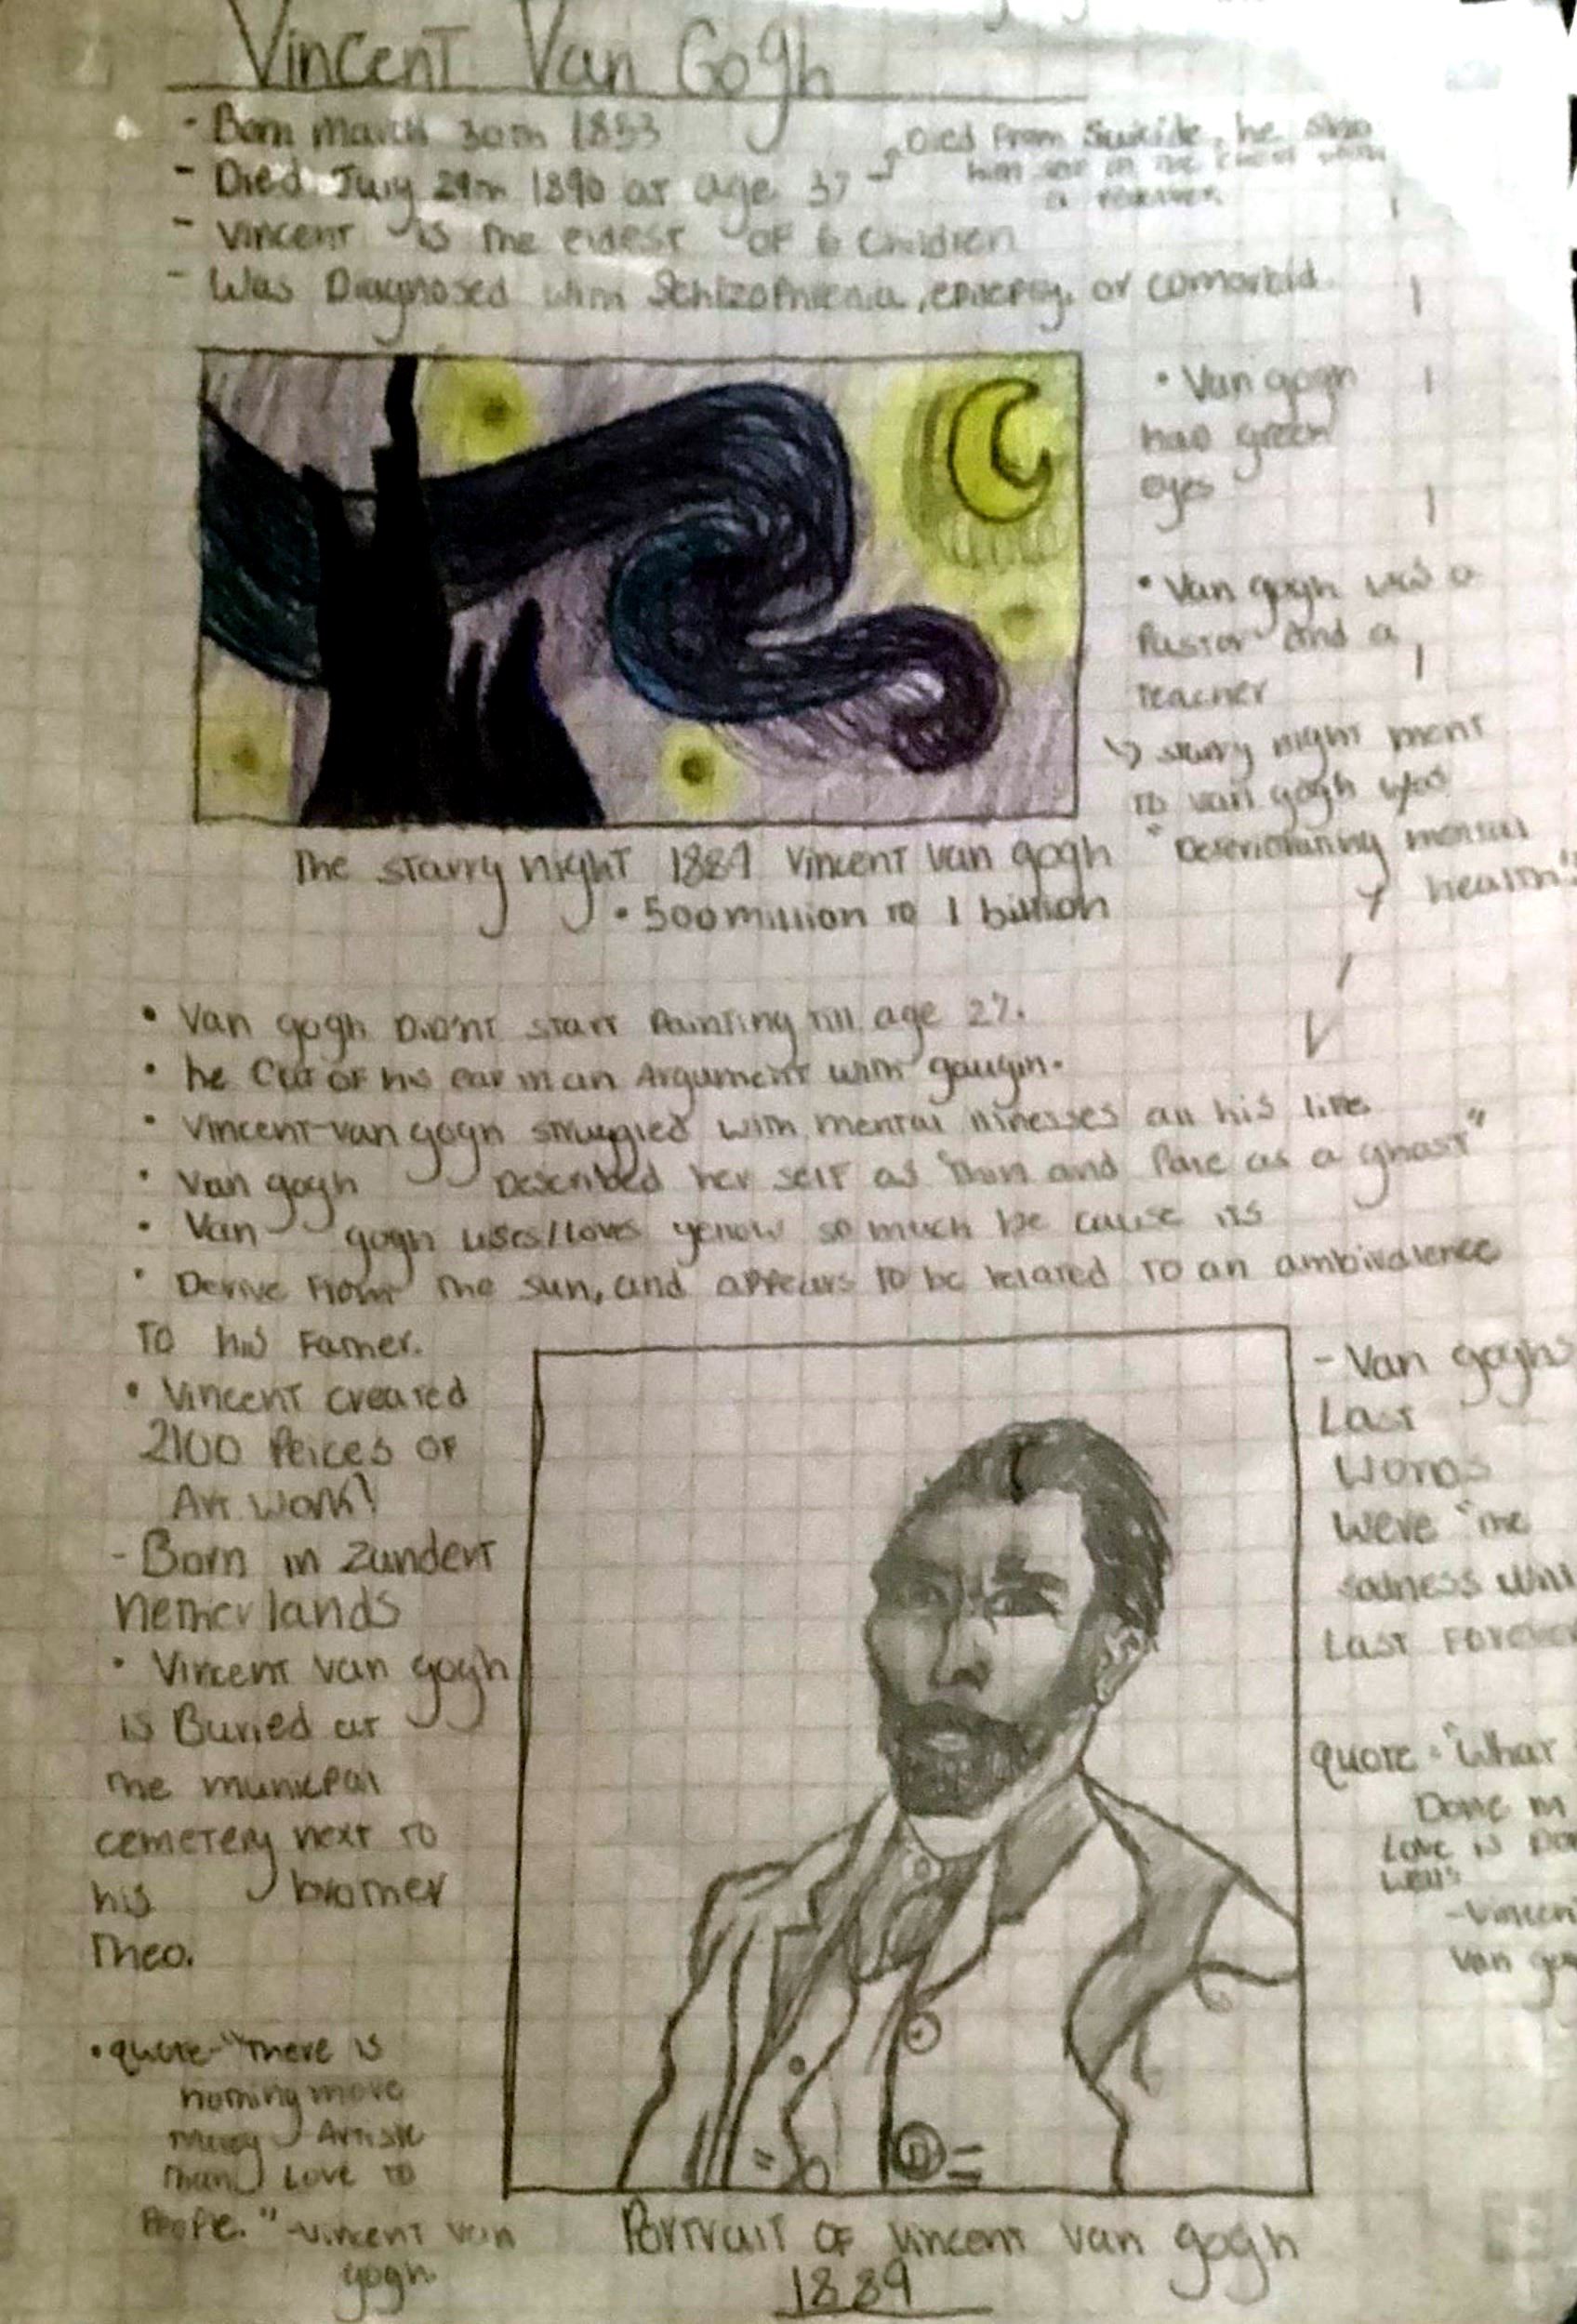 Vincent Van Gogh
- Born March 30th 1853
- Died July 29th 1890 at age 37
Died from Suicide, he shot
him in the chest with
a
- Vincent is the eldest of 6 Children
- Was Diagnosed with Schizophrenia, epilepsy, or comorbid.
• Van gogh
had green
eyes
• Van gogh was a
Pastor and a
Teacher
↳ starry night ment
to van gogh was
"Deteriorating mental
health"
The starry night 1889 Vincent Van gogh
• 500 million to 1 billion
• Van gogh Didnt start Painting till age 27.
• he Cut of his ear in an Argument with gaugin.
• Vincent van gogh struggled with mental illnesses all his life
• Van gogh Described her self as "thin and Pale as a ghost"
• Van gogh uses/loves yellow so much be cause its
• Derive from the sun, and appears to be related to an ambivalence
To his Father.
• Vincent created
2100 Peices of
Art work!
- Born in Zundert
Netherlands
• Vincent van gogh
is Buried at
the municpal
cemetery next to
his brother
Theo.
• quote - "There is
nothing more
Artistic
than Love to
People." - Vincent Van
gogh.
- Van goghs
Last
Words
Were "the
sadness will
Last Forever
quote - "What
Done in
Love is
Well"
- Vincent
Van
Portrait of Vincent Van gogh
1889